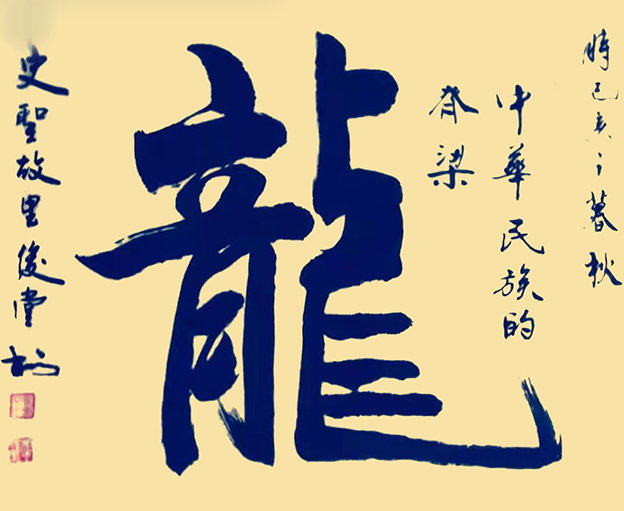 時己亥之暮秋
中華民族的
脊梁
龍
史聖故里俊堂